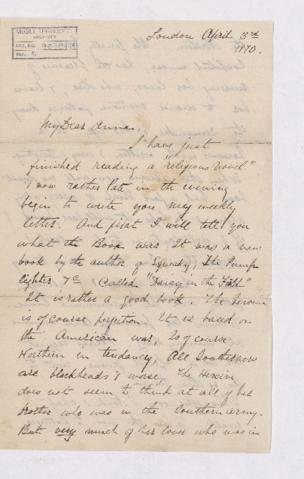 McGILL UNIVERSITY
ARCHIVES
ACC. NO.
REF.
London April 3rd
1870.
My Dear Anna.
I have just
finished reading a "religious novel"
& now rather late in the evening
begin to write you my weekly
letter. And first I will tell you
what the Book was. It was a new
book by the author of Squandy, The Lamp
lighter &c, Called "Daisy in the Field"
It is rather a good book. The heroine
is of course perfection. It is based on
the American war, & of course
Northern in tendancy. All Southerners
are blockheads & worse. The Heroin
does not seem to think at all of her
brother who was in the Southern army.
But very much of her lover who was in